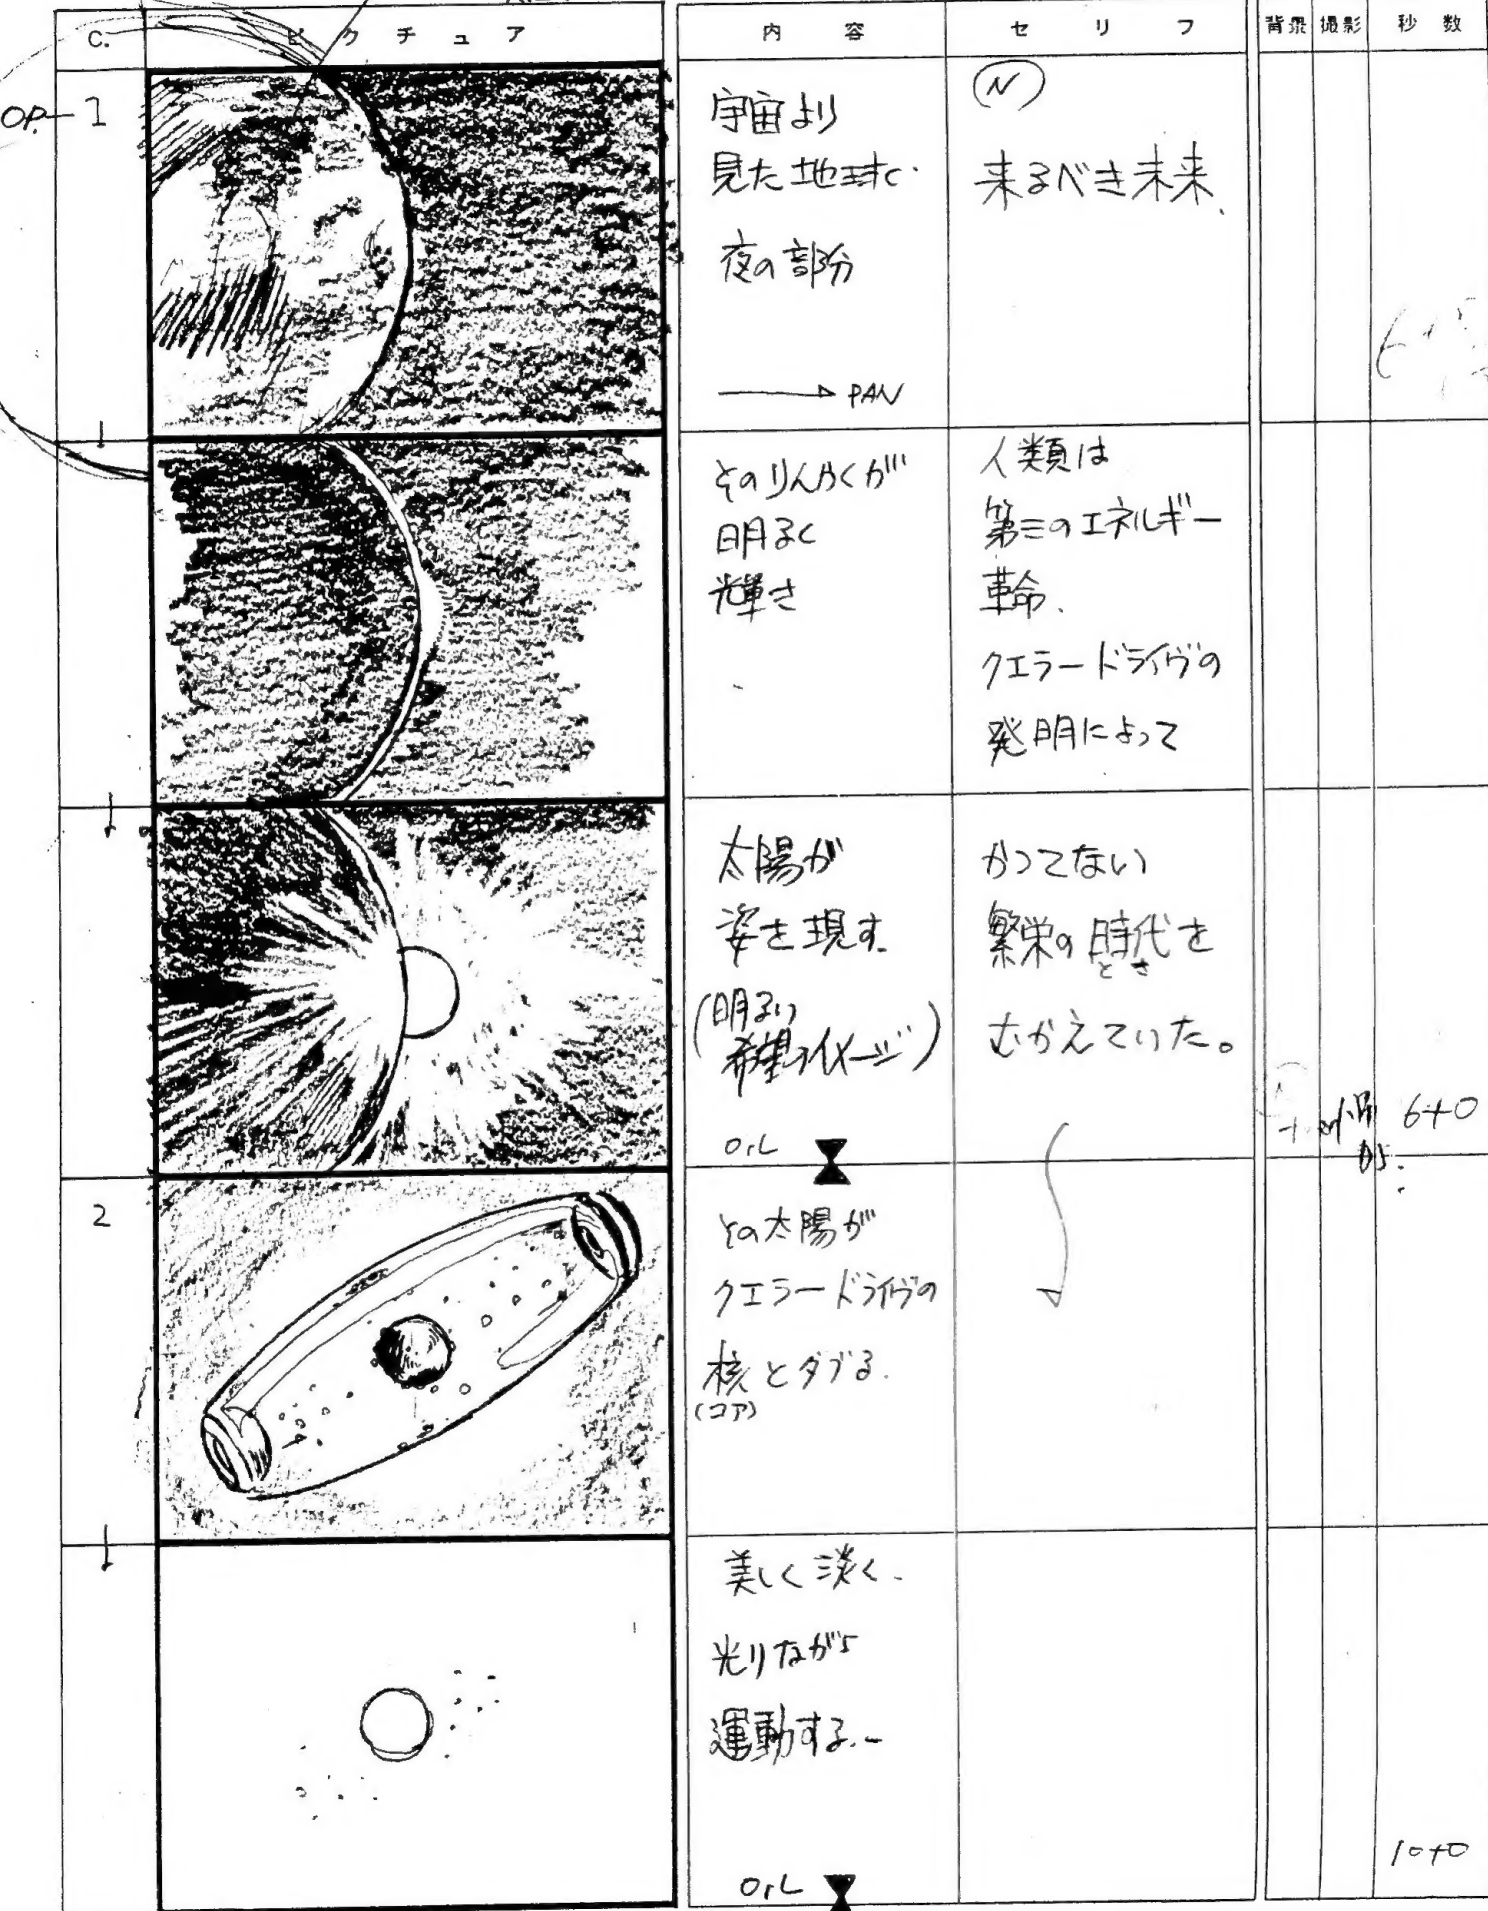 C. ピクチュア 内容 セリフ 背景 撮影 秒数
OP. 1
宇宙より
見た地球で
夜の部分
→ PAN
(N)
来るべき未来、
そのりんかくが
明るく
輝き
人類は
第三のエネルギー
革命、
クエラードライヴの
発明によって
太陽が
姿を現す。
(明るい
希望のイメージ)
O,L
かつてない
繁栄の時代を
とき
むかえていた。
6+0
2
その太陽が
クエラードライヴの
核とダブる。
(コア)
美しく淡く、
光りながら
運動する。
O,L
10+0